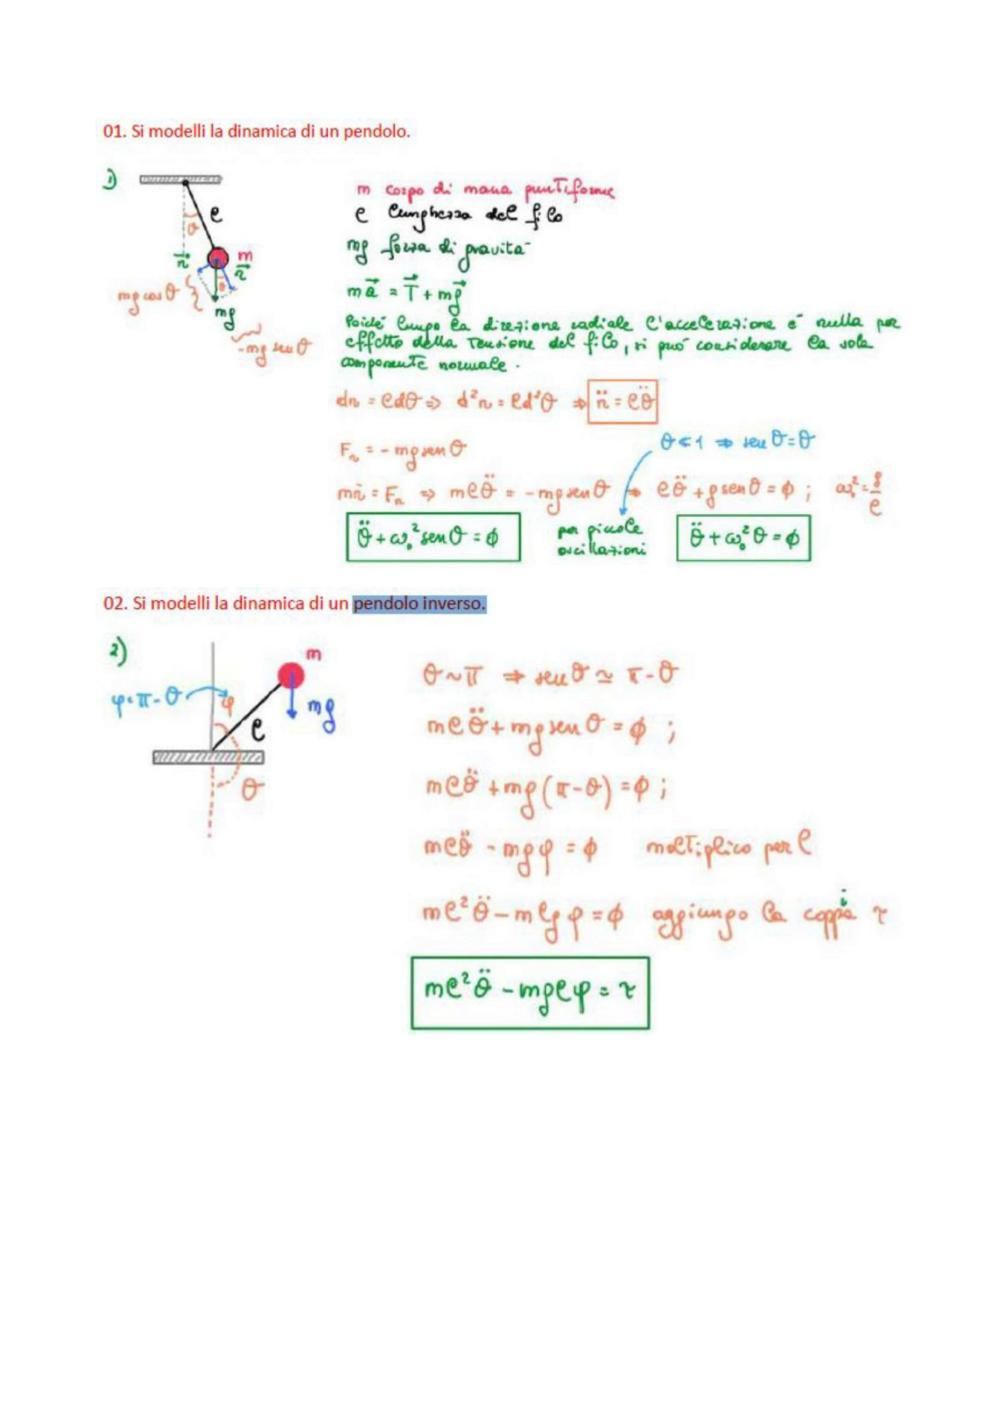 01. Si modelli la dinamica di un pendolo.
1)
θ
ℓ
m
n⃗
n⃗
θ
mg cosθ
mg
-mg senθ
m corpo di massa puntiforme
ℓ lunghezza del filo
mg forza di gravità
ma⃗ = T⃗ + mg⃗
Poiché lungo la direzione radiale l'accelerazione è nulla per
effetto della tensione del filo, si può considerare la sola
componente normale.
dn = ℓdθ ⇒ d²n = ℓd²θ ⇒ n̈ = ℓθ̈
Fₙ = -mg senθ
θ≪1 ⇒ senθ = θ
mn̈ = Fₙ ⇒ mℓθ̈ = -mg senθ ⇒ ℓθ̈ + g senθ = ϕ ; ω₀² = g/ℓ
θ̈ + ω₀² senθ = ϕ
per piccole
oscillazioni
θ̈ + ω₀² θ = ϕ
02. Si modelli la dinamica di un pendolo inverso.
2)
m
φ = π - θ
φ
mg
ℓ
θ
θ ~ π ⇒ senθ ≃ π - θ
mℓθ̈ + mg senθ = ϕ ;
mℓθ̈ + mg(π-θ) = ϕ ;
mℓθ̈ - mgφ = ϕ moltiplico per ℓ
mℓ²θ̈ - mℓgφ = ϕ aggiungo la coppia τ
mℓ²θ̈ - mgℓφ = τ